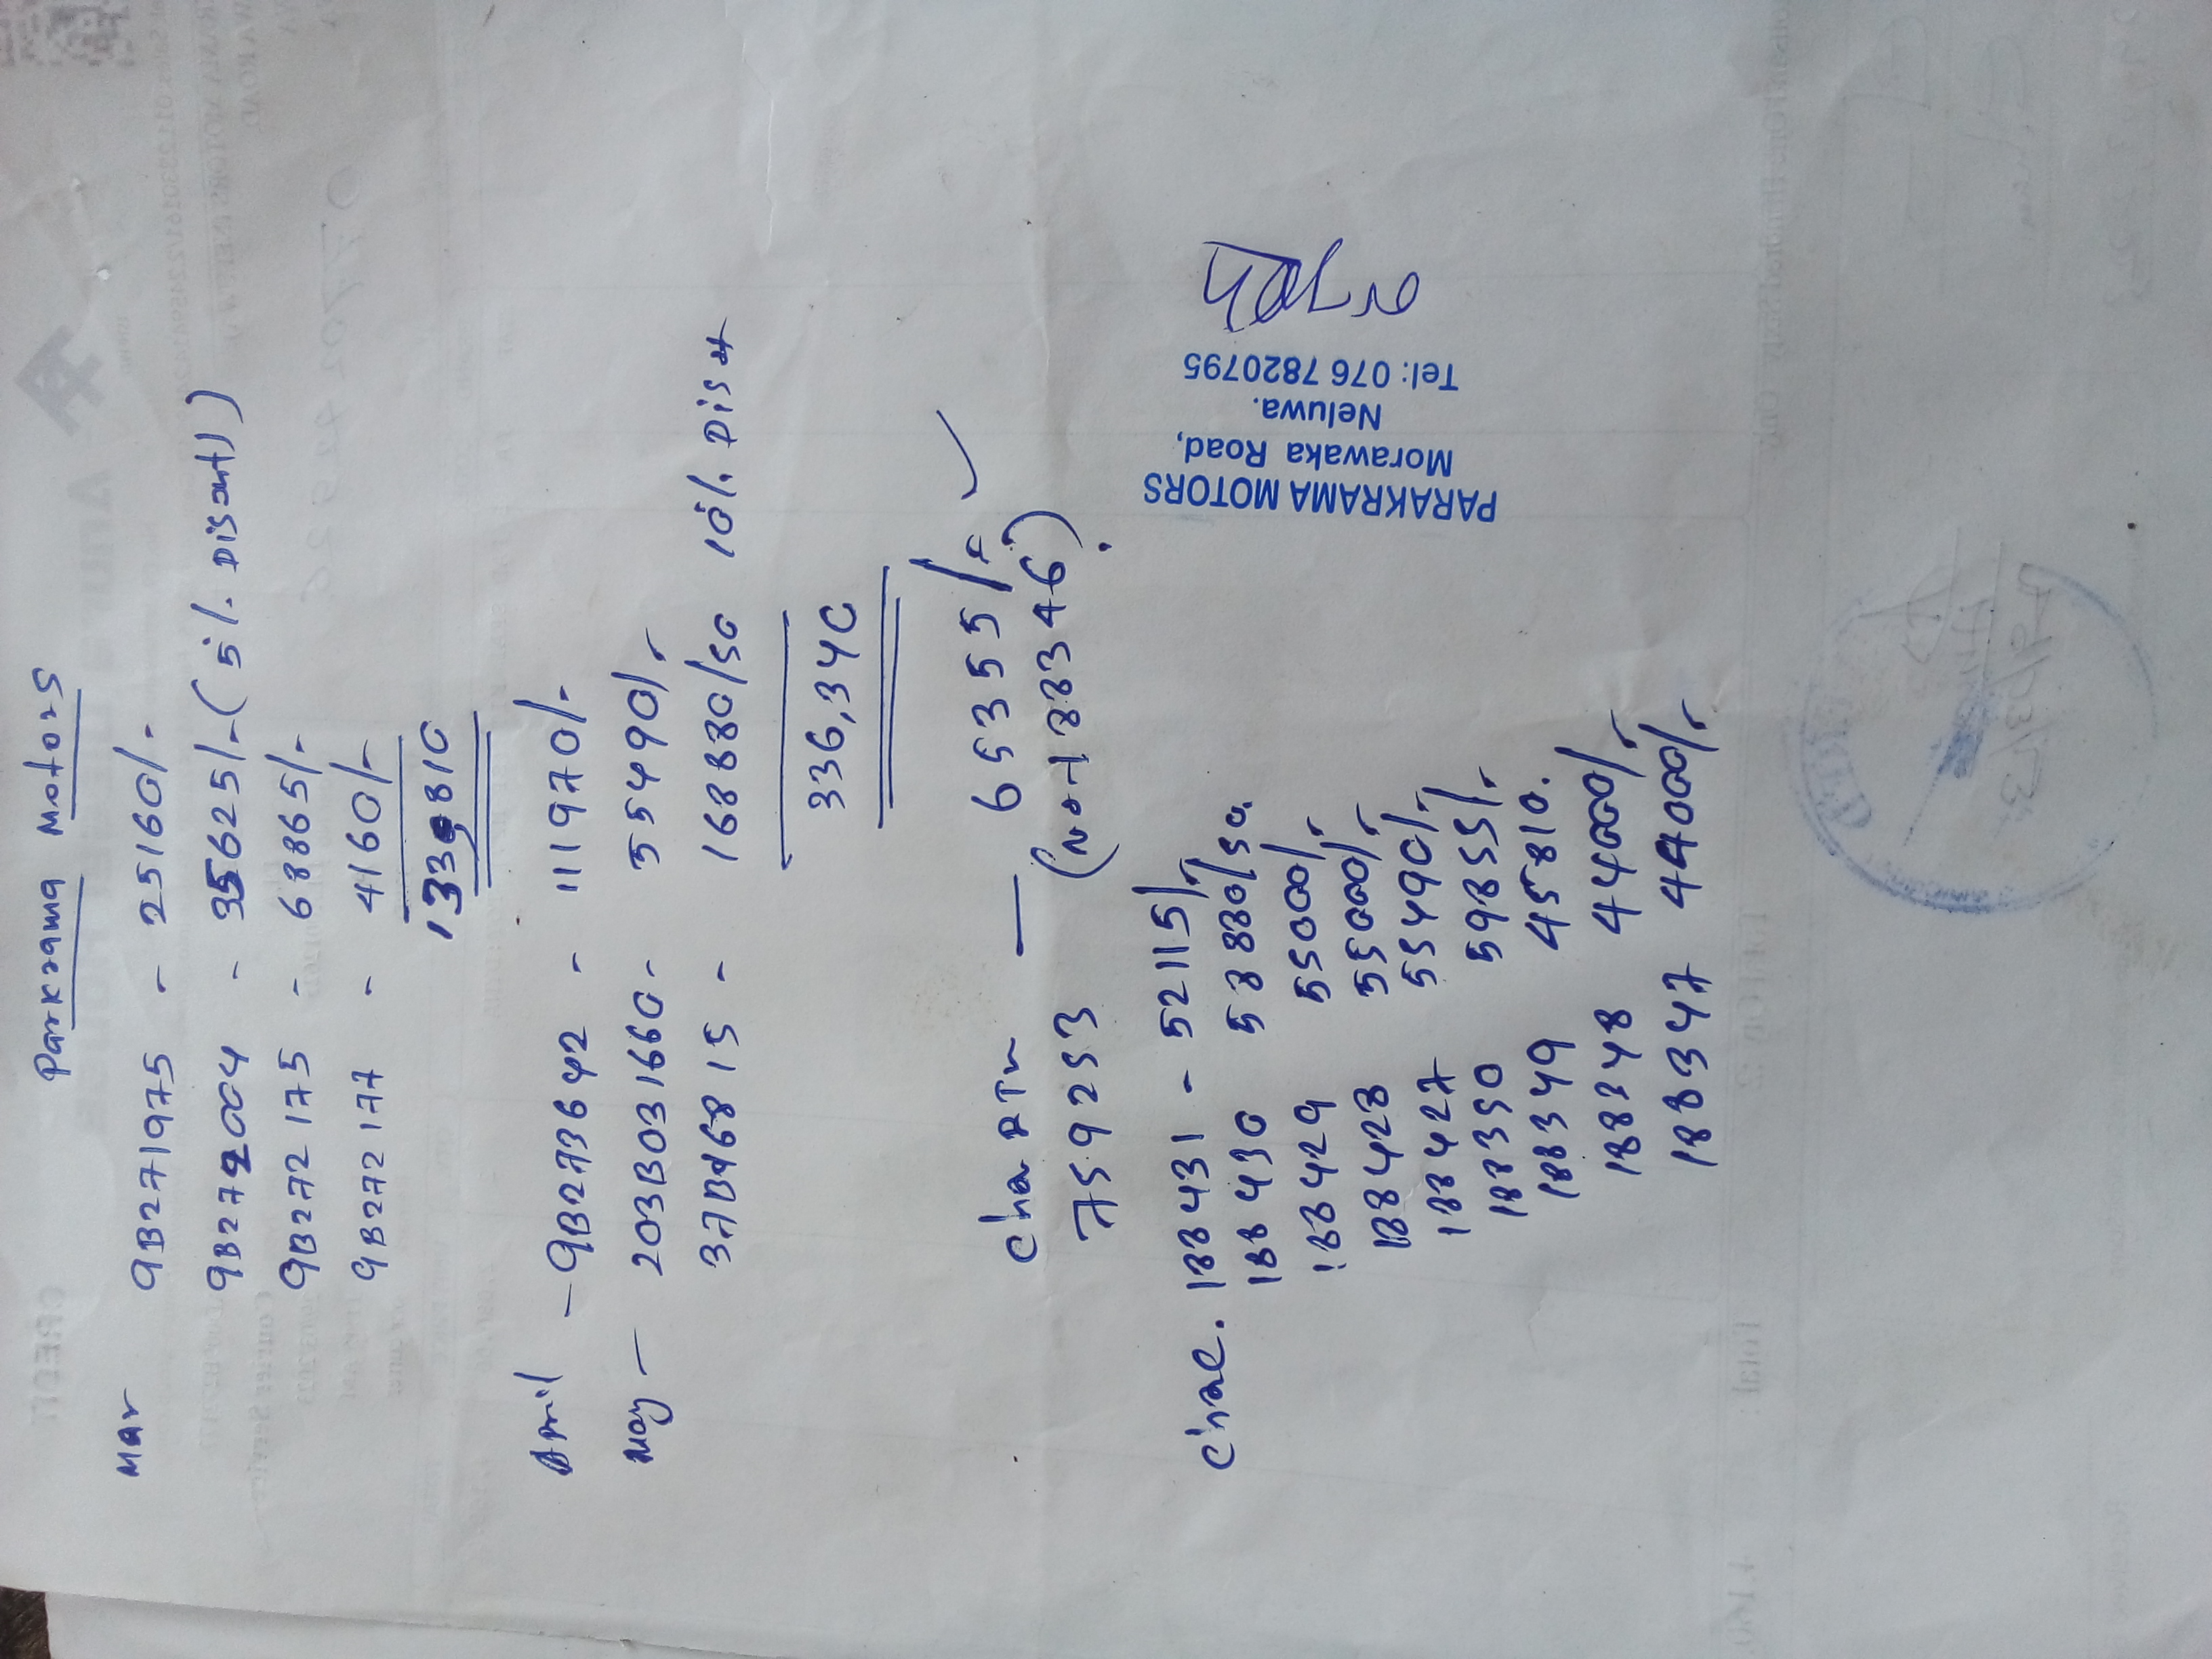 Parkrama Motors
Mar 9B271975 - 25160/-
9B272004 - 35625/- (5%. Disant)
9B272175 - 68865/-
9B272177 - 4160/-
133,810
April - 9B273642 - 111970/-
May - 203B031660 - 55490/-
37B46815 - 168880/50 10%. Dis
336,340
Chae RTn — 65355/-
759253 (No - 188346)
Chae. 188431 - 52115/-
188430 58880/50.
188429 55000/-
188428 55000/-
188427 55490/-
188350 59855/-
188349 45810.
188348 44000/-
188347 44000/-
PARAKRAMA MOTORS
Morawaka Road,
Neluwa.
Tel: 076 7820795